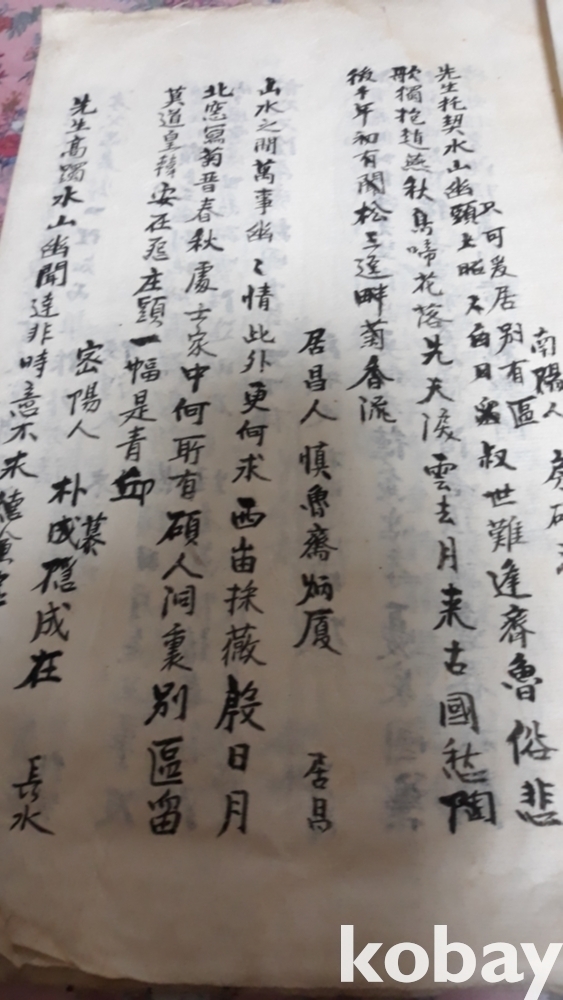 南陽人
只可爰居別有區
先生托契水山幽頭上昭々白日留叔世難逢齊魯俗悲
歌獨抱趙燕秋鳥啼花落先天後雲去月来古國愁陶
後千年初有閑松三逕畔菊香流
居昌人 慎魯齋炳厦 居昌
山水之間萬事幽々情此外更何求西畓採薇殷日月
北窓寫菊晋春秋處士家中何所有碩人洞裏別區留
箕道皇 安在 庄顕一幅是青邱
密陽人 朴成 隱成在 長水
先生高躅水山幽聞達非時意不求
kobay